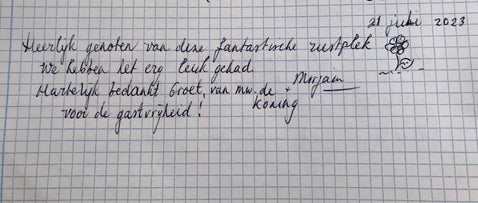 21 juni 2023
Heerlijk genoten van deze fantastische rustplek
We hebben het erg leuk gehad.
Hartelijk bedankt Groet, van mw. de Koning
voor de gastvrijheid!